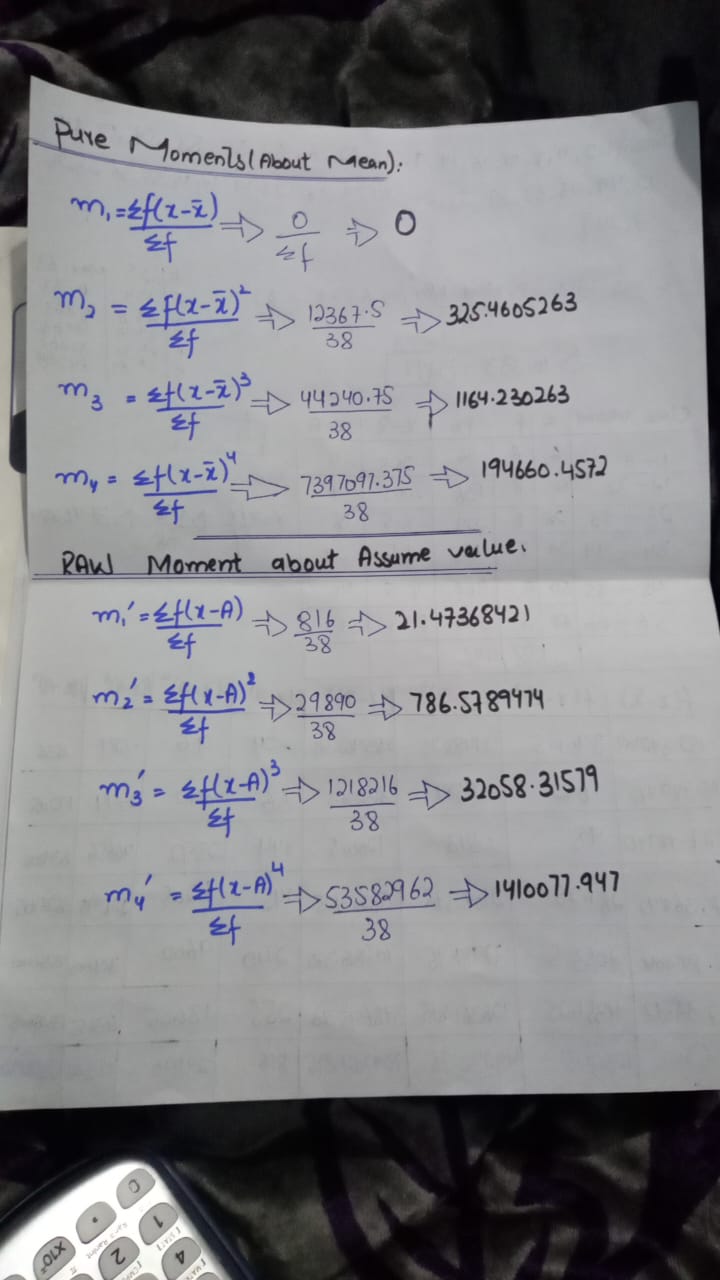 Pure Moments (About Mean):
m₁ = Σf(x-x̄)/Σf ⇒ 0/Σf ⇒ 0
m₂ = Σf(x-x̄)²/Σf ⇒ 12367.5/38 ⇒ 325.4605263
m₃ = Σf(x-x̄)³/Σf ⇒ 44240.75/38 ⇒ 1164.230263
m₄ = Σf(x-x̄)⁴/Σf ⇒ 7397097.375/38 ⇒ 194660.4572
RAW Moment about Assume value.
m₁′ = Σf(x-A)/Σf ⇒ 816/38 ⇒ 21.47368421
m₂′ = Σf(x-A)²/Σf ⇒ 29890/38 ⇒ 786.5789474
m₃′ = Σf(x-A)³/Σf ⇒ 1218216/38 ⇒ 32058.31579
m₄′ = Σf(x-A)⁴/Σf ⇒ 53582962/38 ⇒ 1410077.947
0
•
1
×10ˣ
2
4